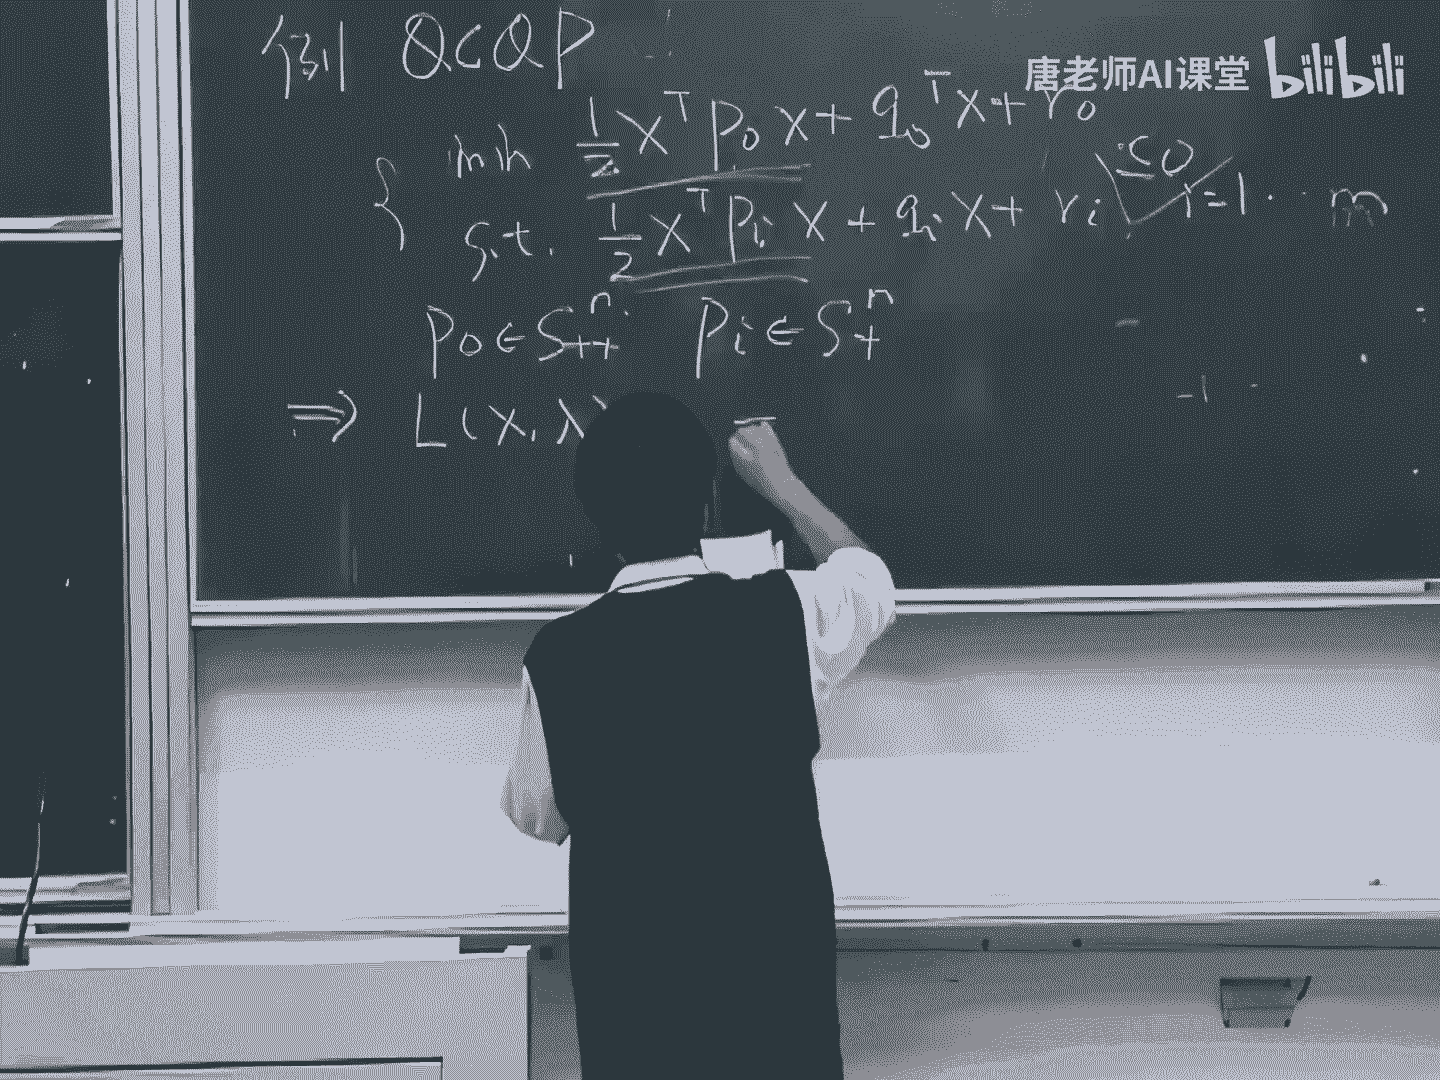 例 QCQP
唐老师AI课堂 bilibili
min 1/2 x^T P_0 x + q_0^T x + r_0
s.t. 1/2 x^T P_i x + q_i x + r_i ≤0 i=1·· m
P_0 ∈ S_{++}^n P_i ∈ S_+^n
⇒ L(x, λ) =